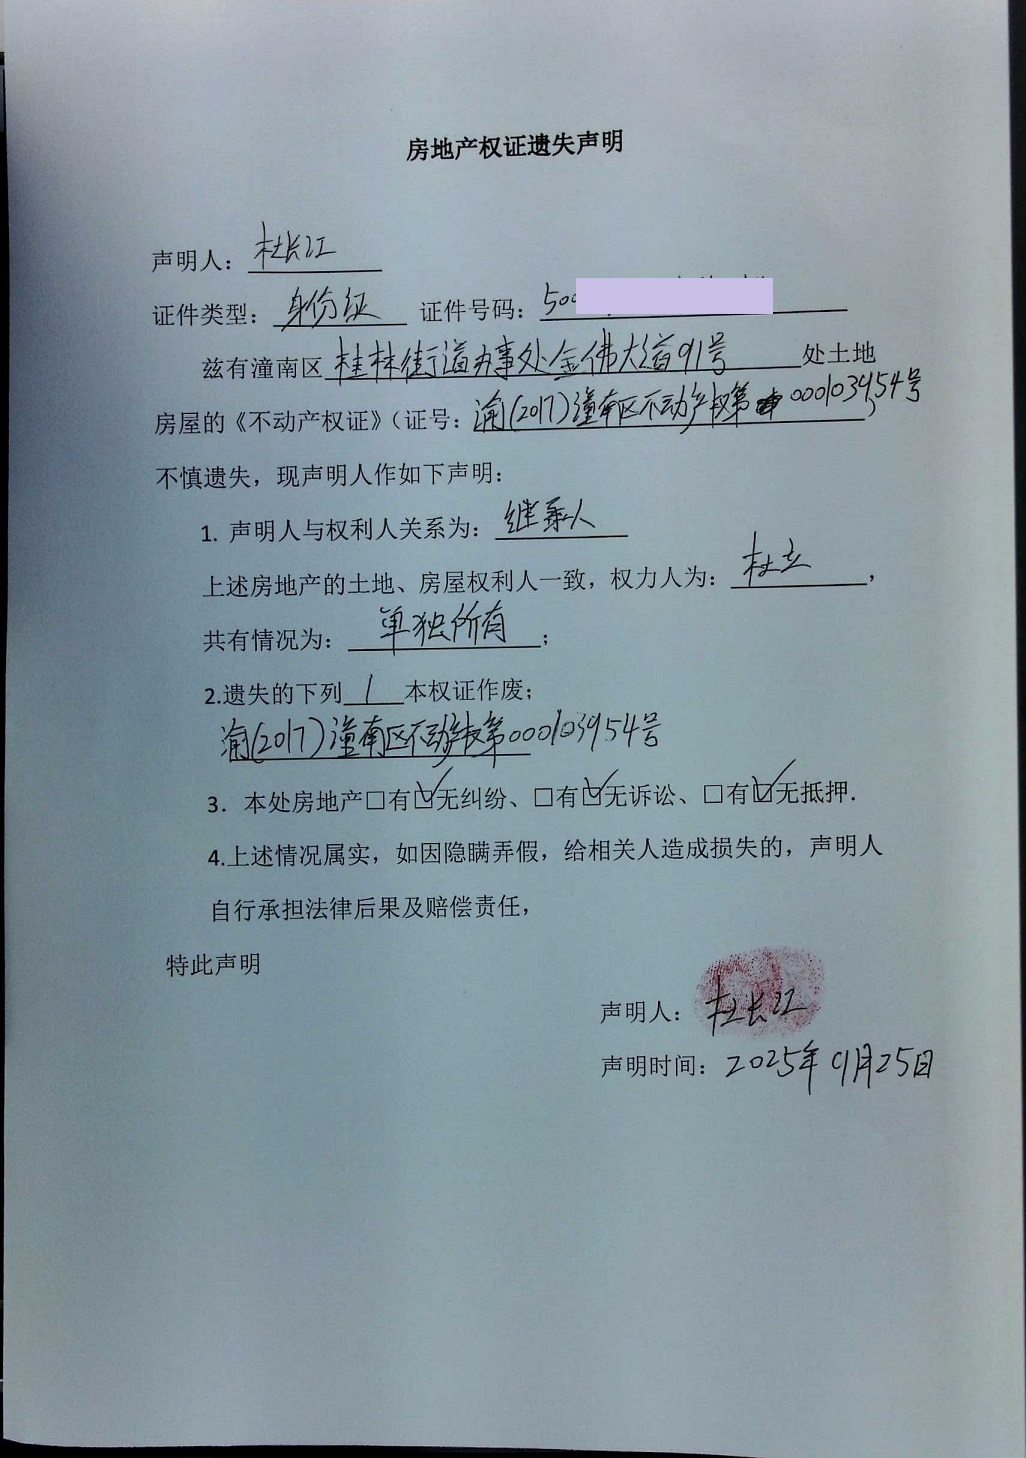 房地产权证遗失声明
声明人：杜长江
证件类型：身份证 证件号码：500
兹有潼南区桂林街道办事处金佛大道91号处土地
房屋的《不动产权证》（证号：渝(2017)潼南区不动产权第000103954号）
不慎遗失，现声明人作如下声明：
1. 声明人与权利人关系为：继承人
上述房地产的土地、房屋权利人一致，权力人为：杜立，
共有情况为：单独所有；
2.遗失的下列1本权证作废；
渝(2017)潼南区不动产权第000103954号
3. 本处房地产□有☑无纠纷、□有☑无诉讼、□有☑无抵押.
4.上述情况属实，如因隐瞒弄假，给相关人造成损失的，声明人
自行承担法律后果及赔偿责任，
特此声明
声明人：杜长江
声明时间：2025年01月25日